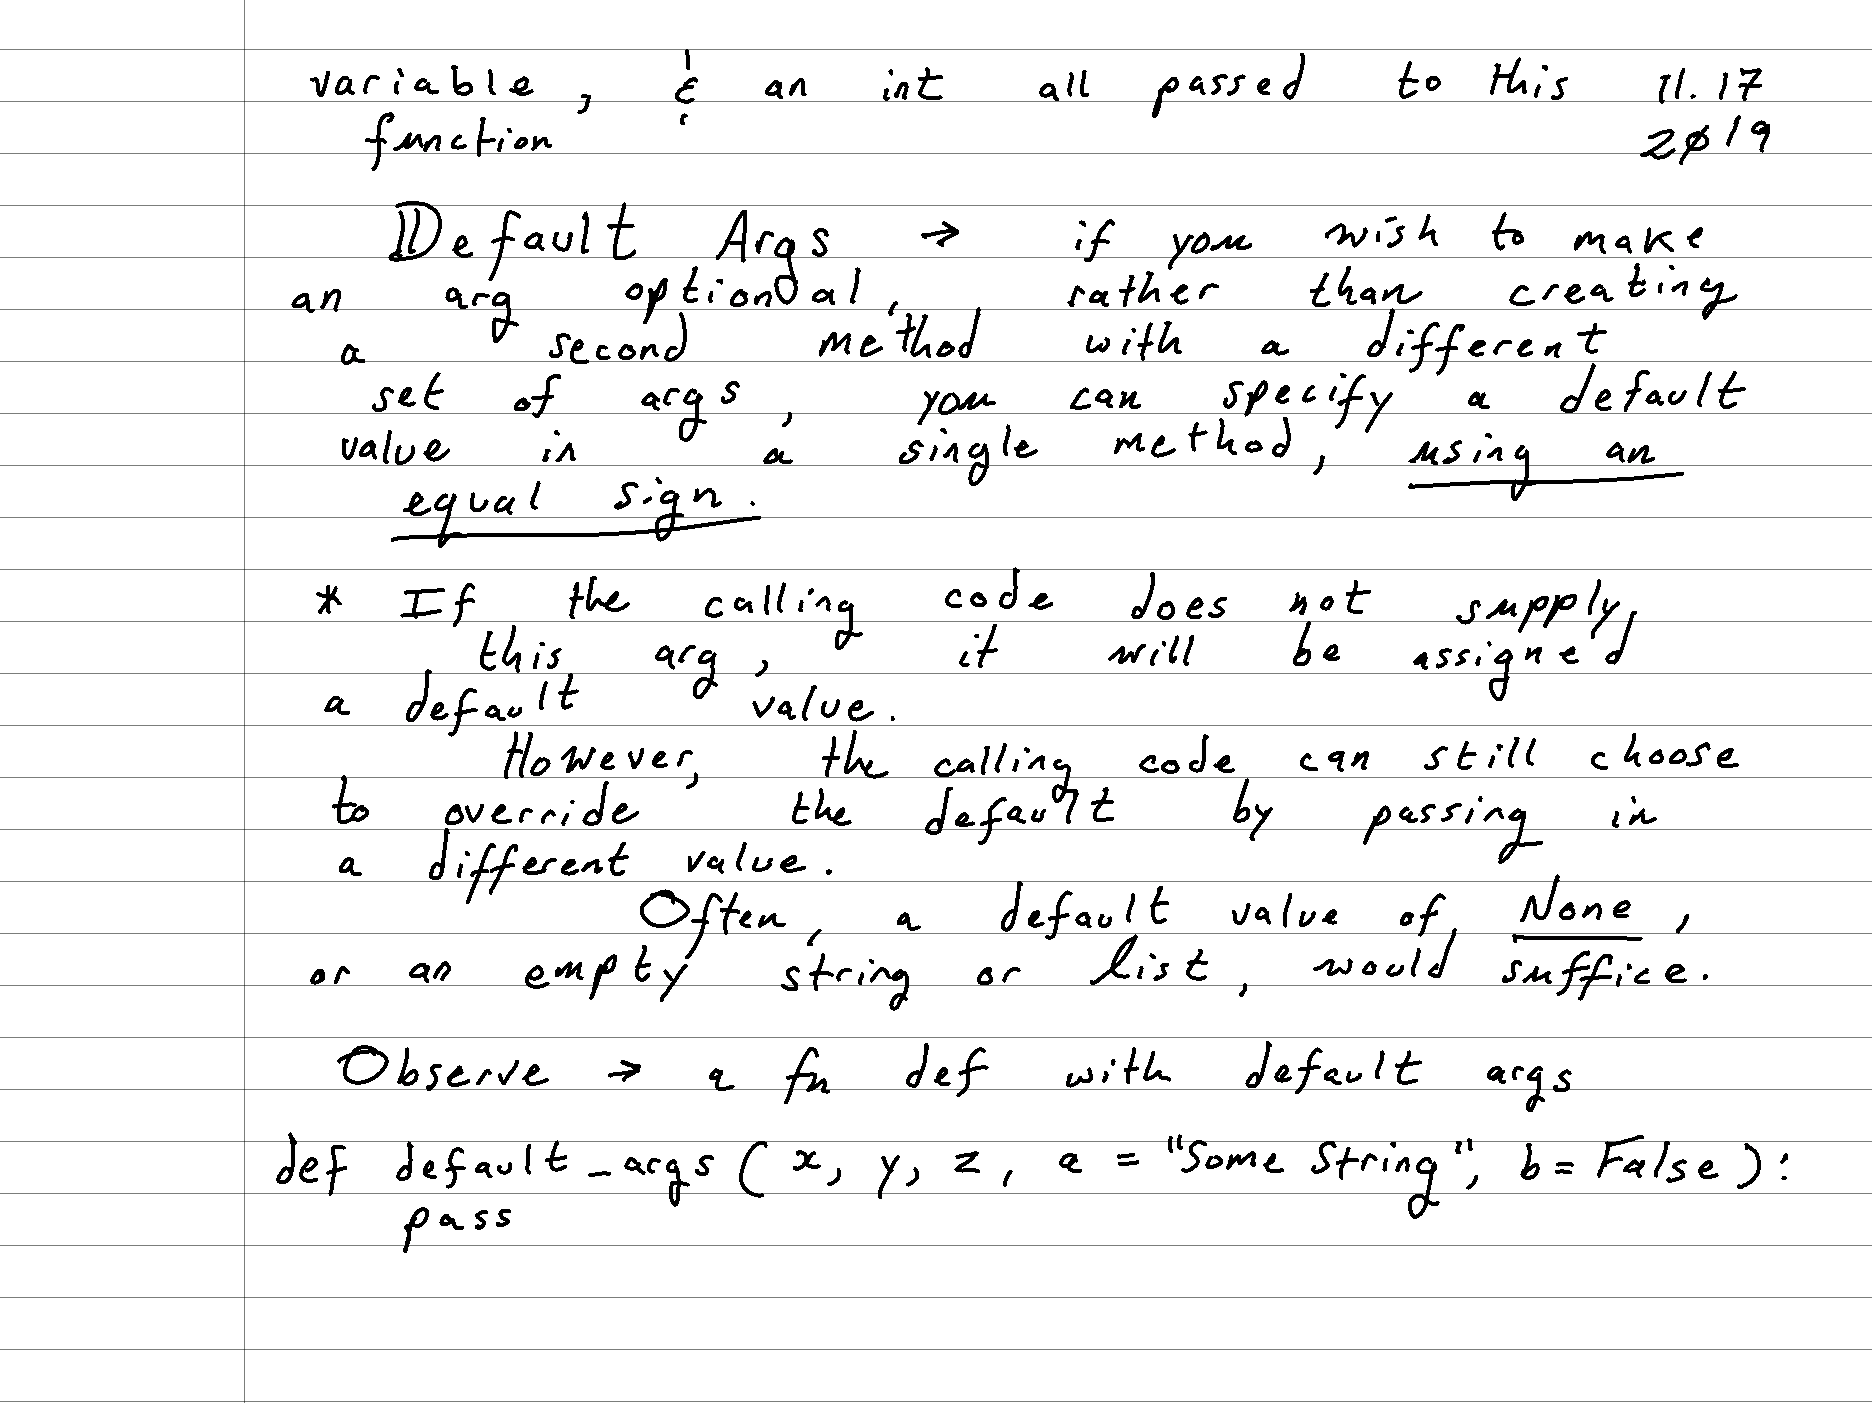 variable, & an int all passed to this 11.17
function 2019
Default Args → if you wish to make
an arg optional, rather than creating
a second method with a different
set of args, you can specify a default
value in a single method, using an
equal sign.
* If the calling code does not supply
this arg, it will be assigned
a default value.
However, the calling code can still choose
to override the default by passing in
a different value.
Often, a default value of None,
or an empty string or list, would suffice.
Observe → a fn def with default args
def default_args(x, y, z, a = "Some String", b = False):
pass